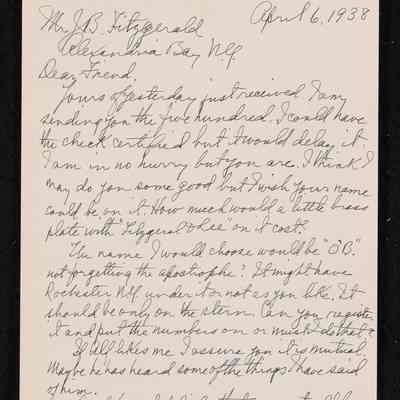 April 6, 1938
Mr J.B. Fitzgerald
Alexandria Bay N.Y.
Dear Friend,
Yours of yesterday just received. I am
sending you the five hundred. I could have
the check certified but it would delay it.
I am in no hurry but you are. I think I
may do you some good but I wish your name
could be on it. How much would a little brass
plate with "Fitzgerald & Lee" on it cost?
The name I would choose would be "O.B."
not forgetting the apostrophe? It might have
Rochester N.Y. under it or not as you like. It
should be only on the stern. Can you register
it and put the numbers on or must I do that?
If Ed likes me I assure you it is mutual.
Maybe he has heard some of the things I have said
of him.